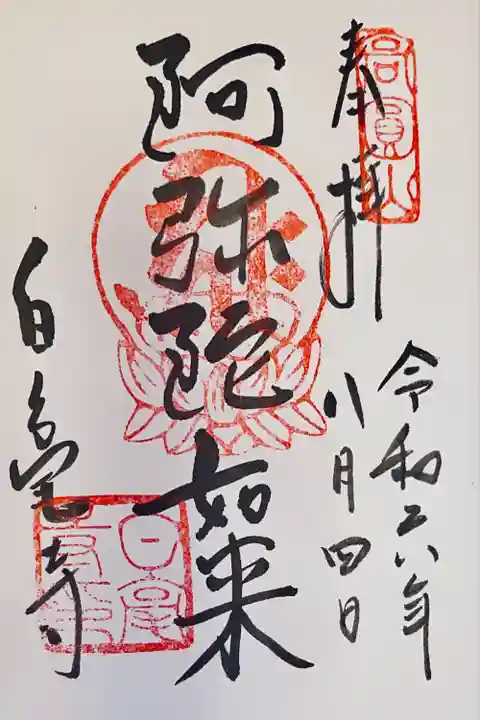 高圓山
奉拝
令和六年
八月四日
阿弥陀如来
白毫寺